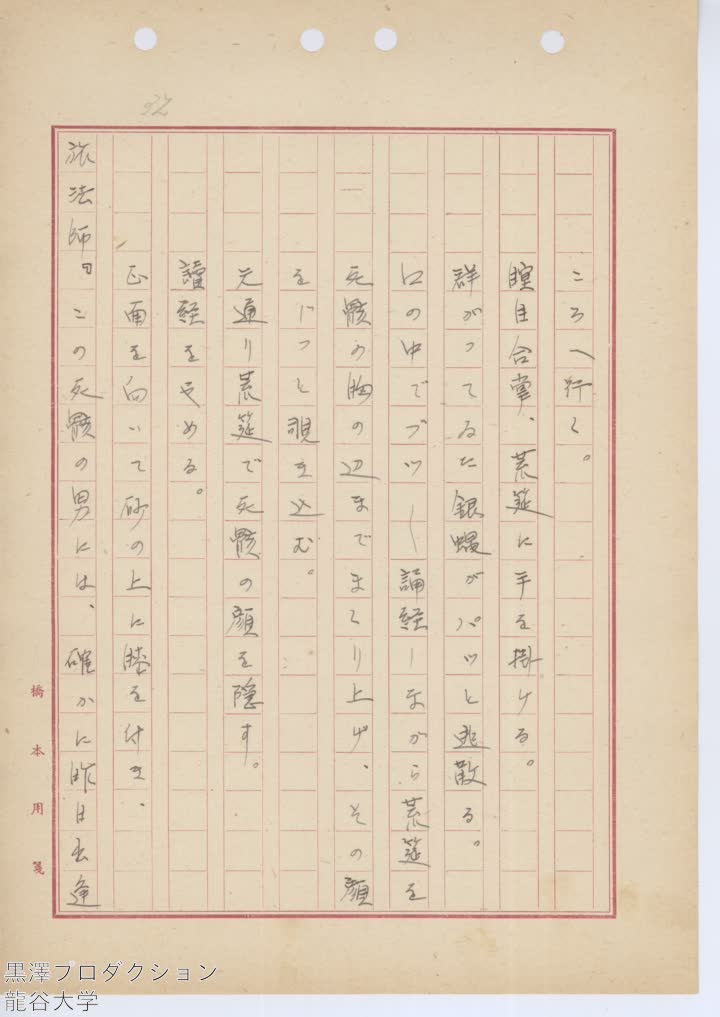 ころへ行く。
瞑目合掌、荒筵に手を掛ける。
群がってゐた銀蠅がパッと逃散る。
口の中でブツ〱誦経しながら荒筵を
死骸の胸の辺までまくり上げ、その顔
をじっと覗き込む。
元通り荒筵で死骸の顔を隠す。
讀経をやめる。
正面を向いて砂の上に膝を付き、
旅法師『この死骸の男には、確かに昨日出逢
橋本用箋
黒澤プロダクション
龍谷大学